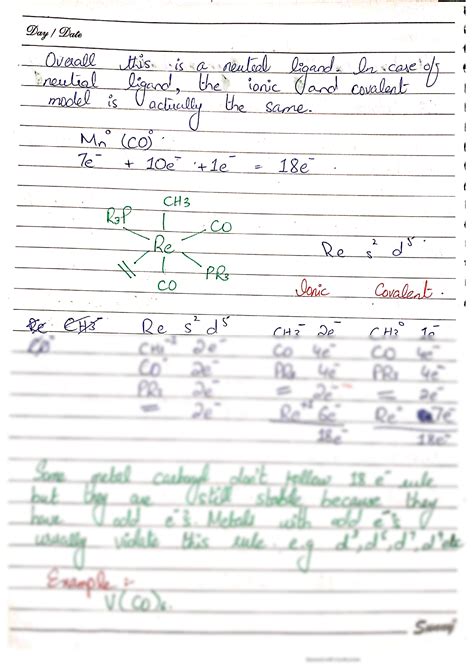 Day / Date
Overall this is a neutral ligand. In case of
neutral ligand, the ionic and covalent
model is actually the same.
Mn° (CO)°
7e⁻ + 10e⁻ + 1e⁻ = 18e⁻
CH3
R3P CO
Re
PR3
CO
Re s² d⁵
Ionic Covalent
Re s² d⁵ CH3⁻ 2e⁻ CH3° 1e⁻
2e⁻ CO 4e⁻ CO 4e⁻
CO 2e⁻ PR3 4e⁻ PR3 4e⁻
PR3 2e⁻ = 2e⁻ = 2e⁻
= 2e⁻ Re⁺¹ 6e⁻ Re° 7e⁻
18e⁻ 18e⁻
Some metal carbonyl don't follow 18 e⁻ rule
but they are still stable because they
have odd e⁻s. Metals with odd e⁻s
usually violate this rule. e.g d³, d⁵, d⁷, d⁹
Example :-
V(CO)₆